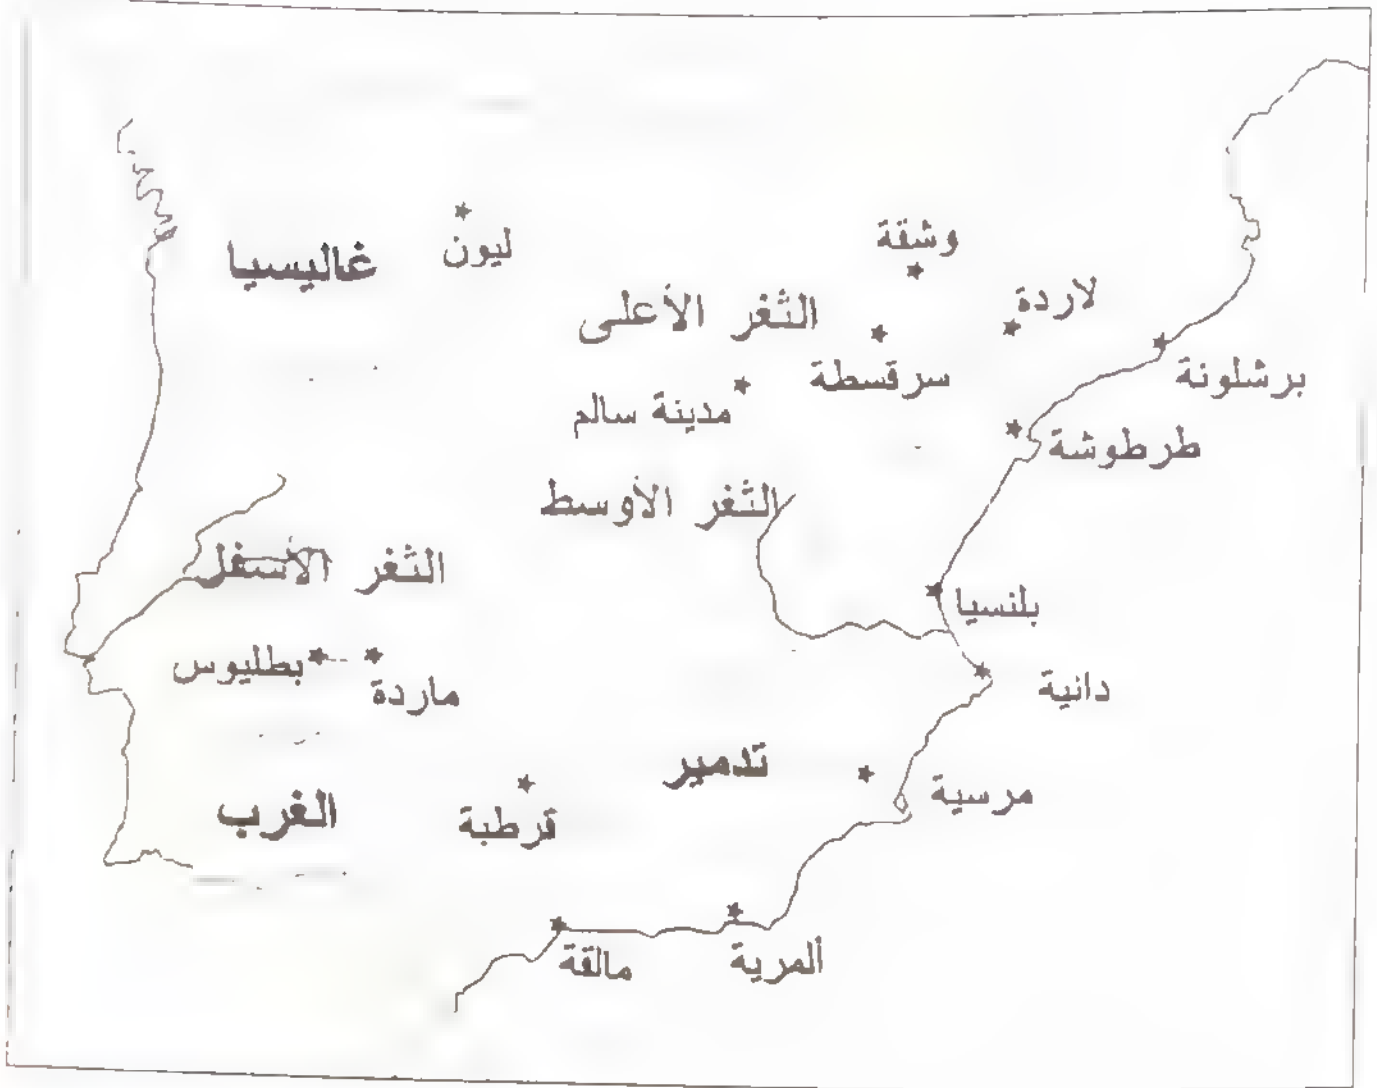 وشقة
ليون
غاليسيا
لاردة
الثغر الأعلى
سرقسطة
برشلونة
مدينة سالم
طرطوشة
الثغر الأوسط
الثغر الأسفل
بلنسيا
بطليوس
ماردة
دانية
تدمير
مرسية
الغرب
قرطبة
ألمرية
مالقة